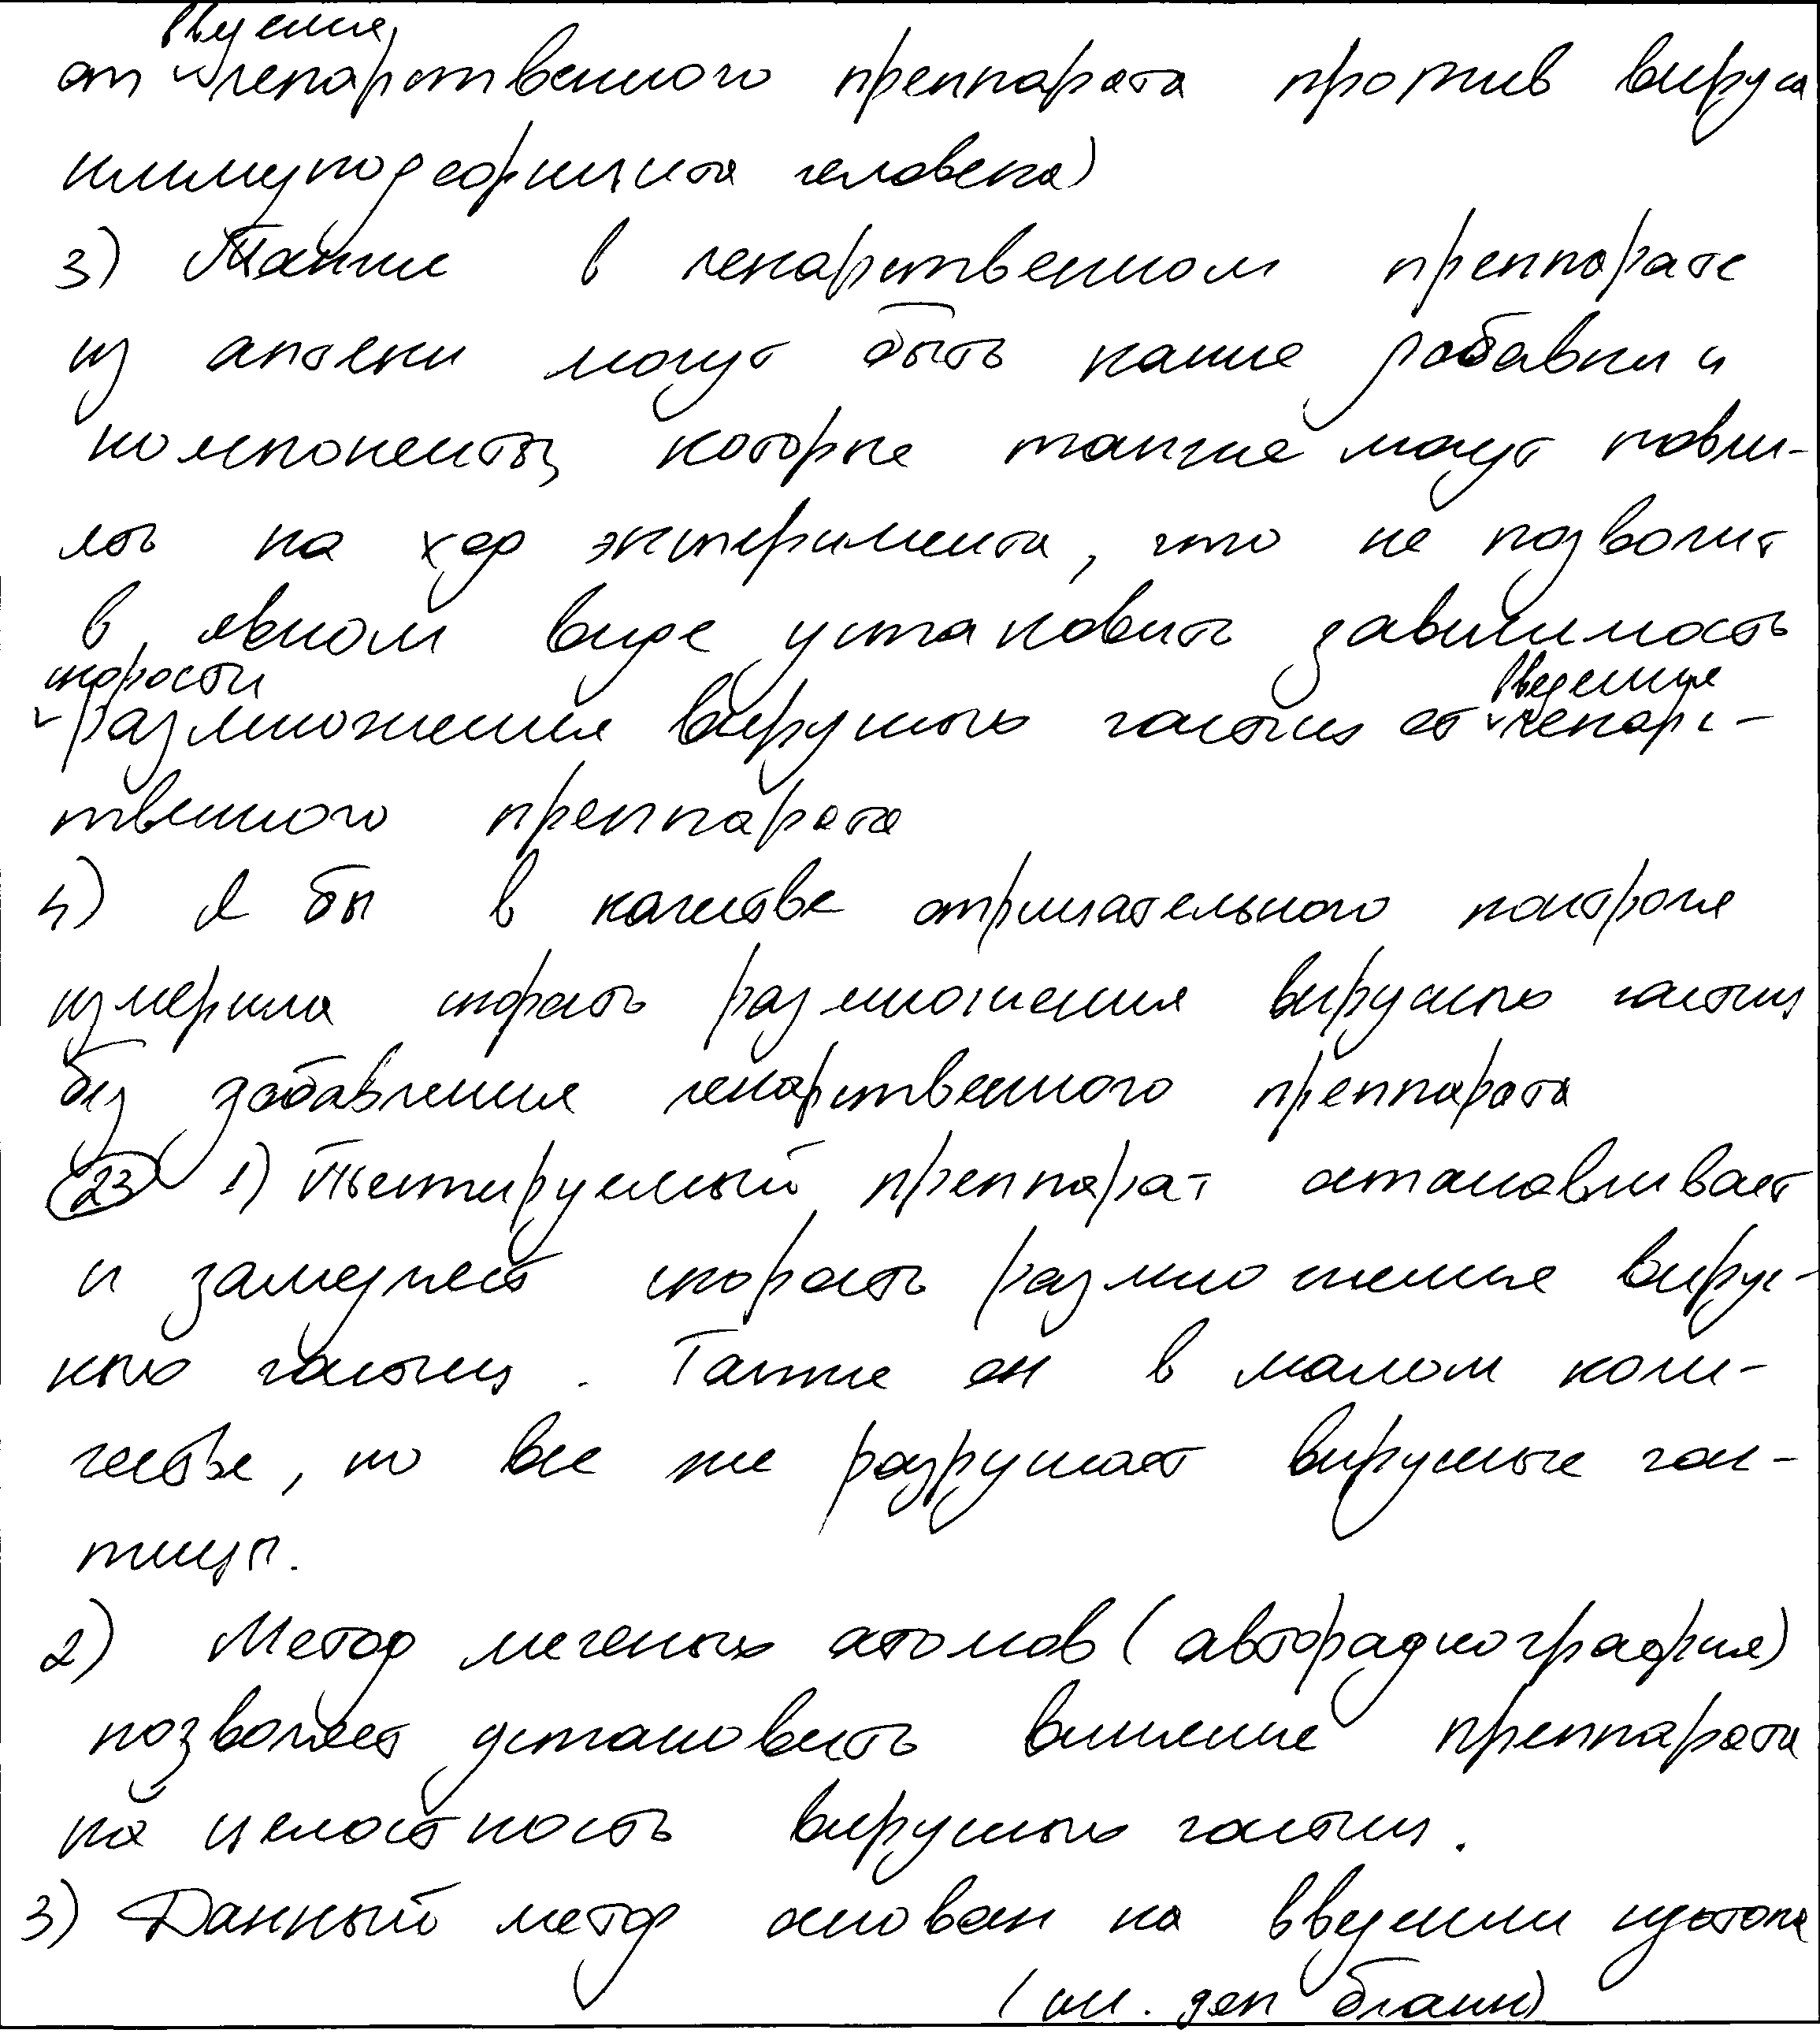 введения
от ˅лекарственного преппарата против вируса
иммунодефицита человека)
3) Также в лекарственном преппарате
из аптеки могут быть какие добавки и
компоненты, которые также могут повли-
ять на ход эксперимента, что не позволит
в явном виде установить зависимость
скорости введения
˅размножения вирусных частиц от ˅лекарс-
твенного преппарата
4) Я бы в качестве отрицательного контроля
измерила скорость размножения вирусных частиц
без добавления лекарственного преппарата
23 1) Тестируемый преппарат останавливает
и замедляет скорость размножения вирус-
ных частиц. Также он в малом коли-
честве, но все же разрушает вирусные час-
тицы.
2) Метод меченых атомов (авторадиография)
позволяет установить влияние преппарата
на целостность вирусных частиц.
3) Данный метод основан на введении изотопа
(см. доп бланк)